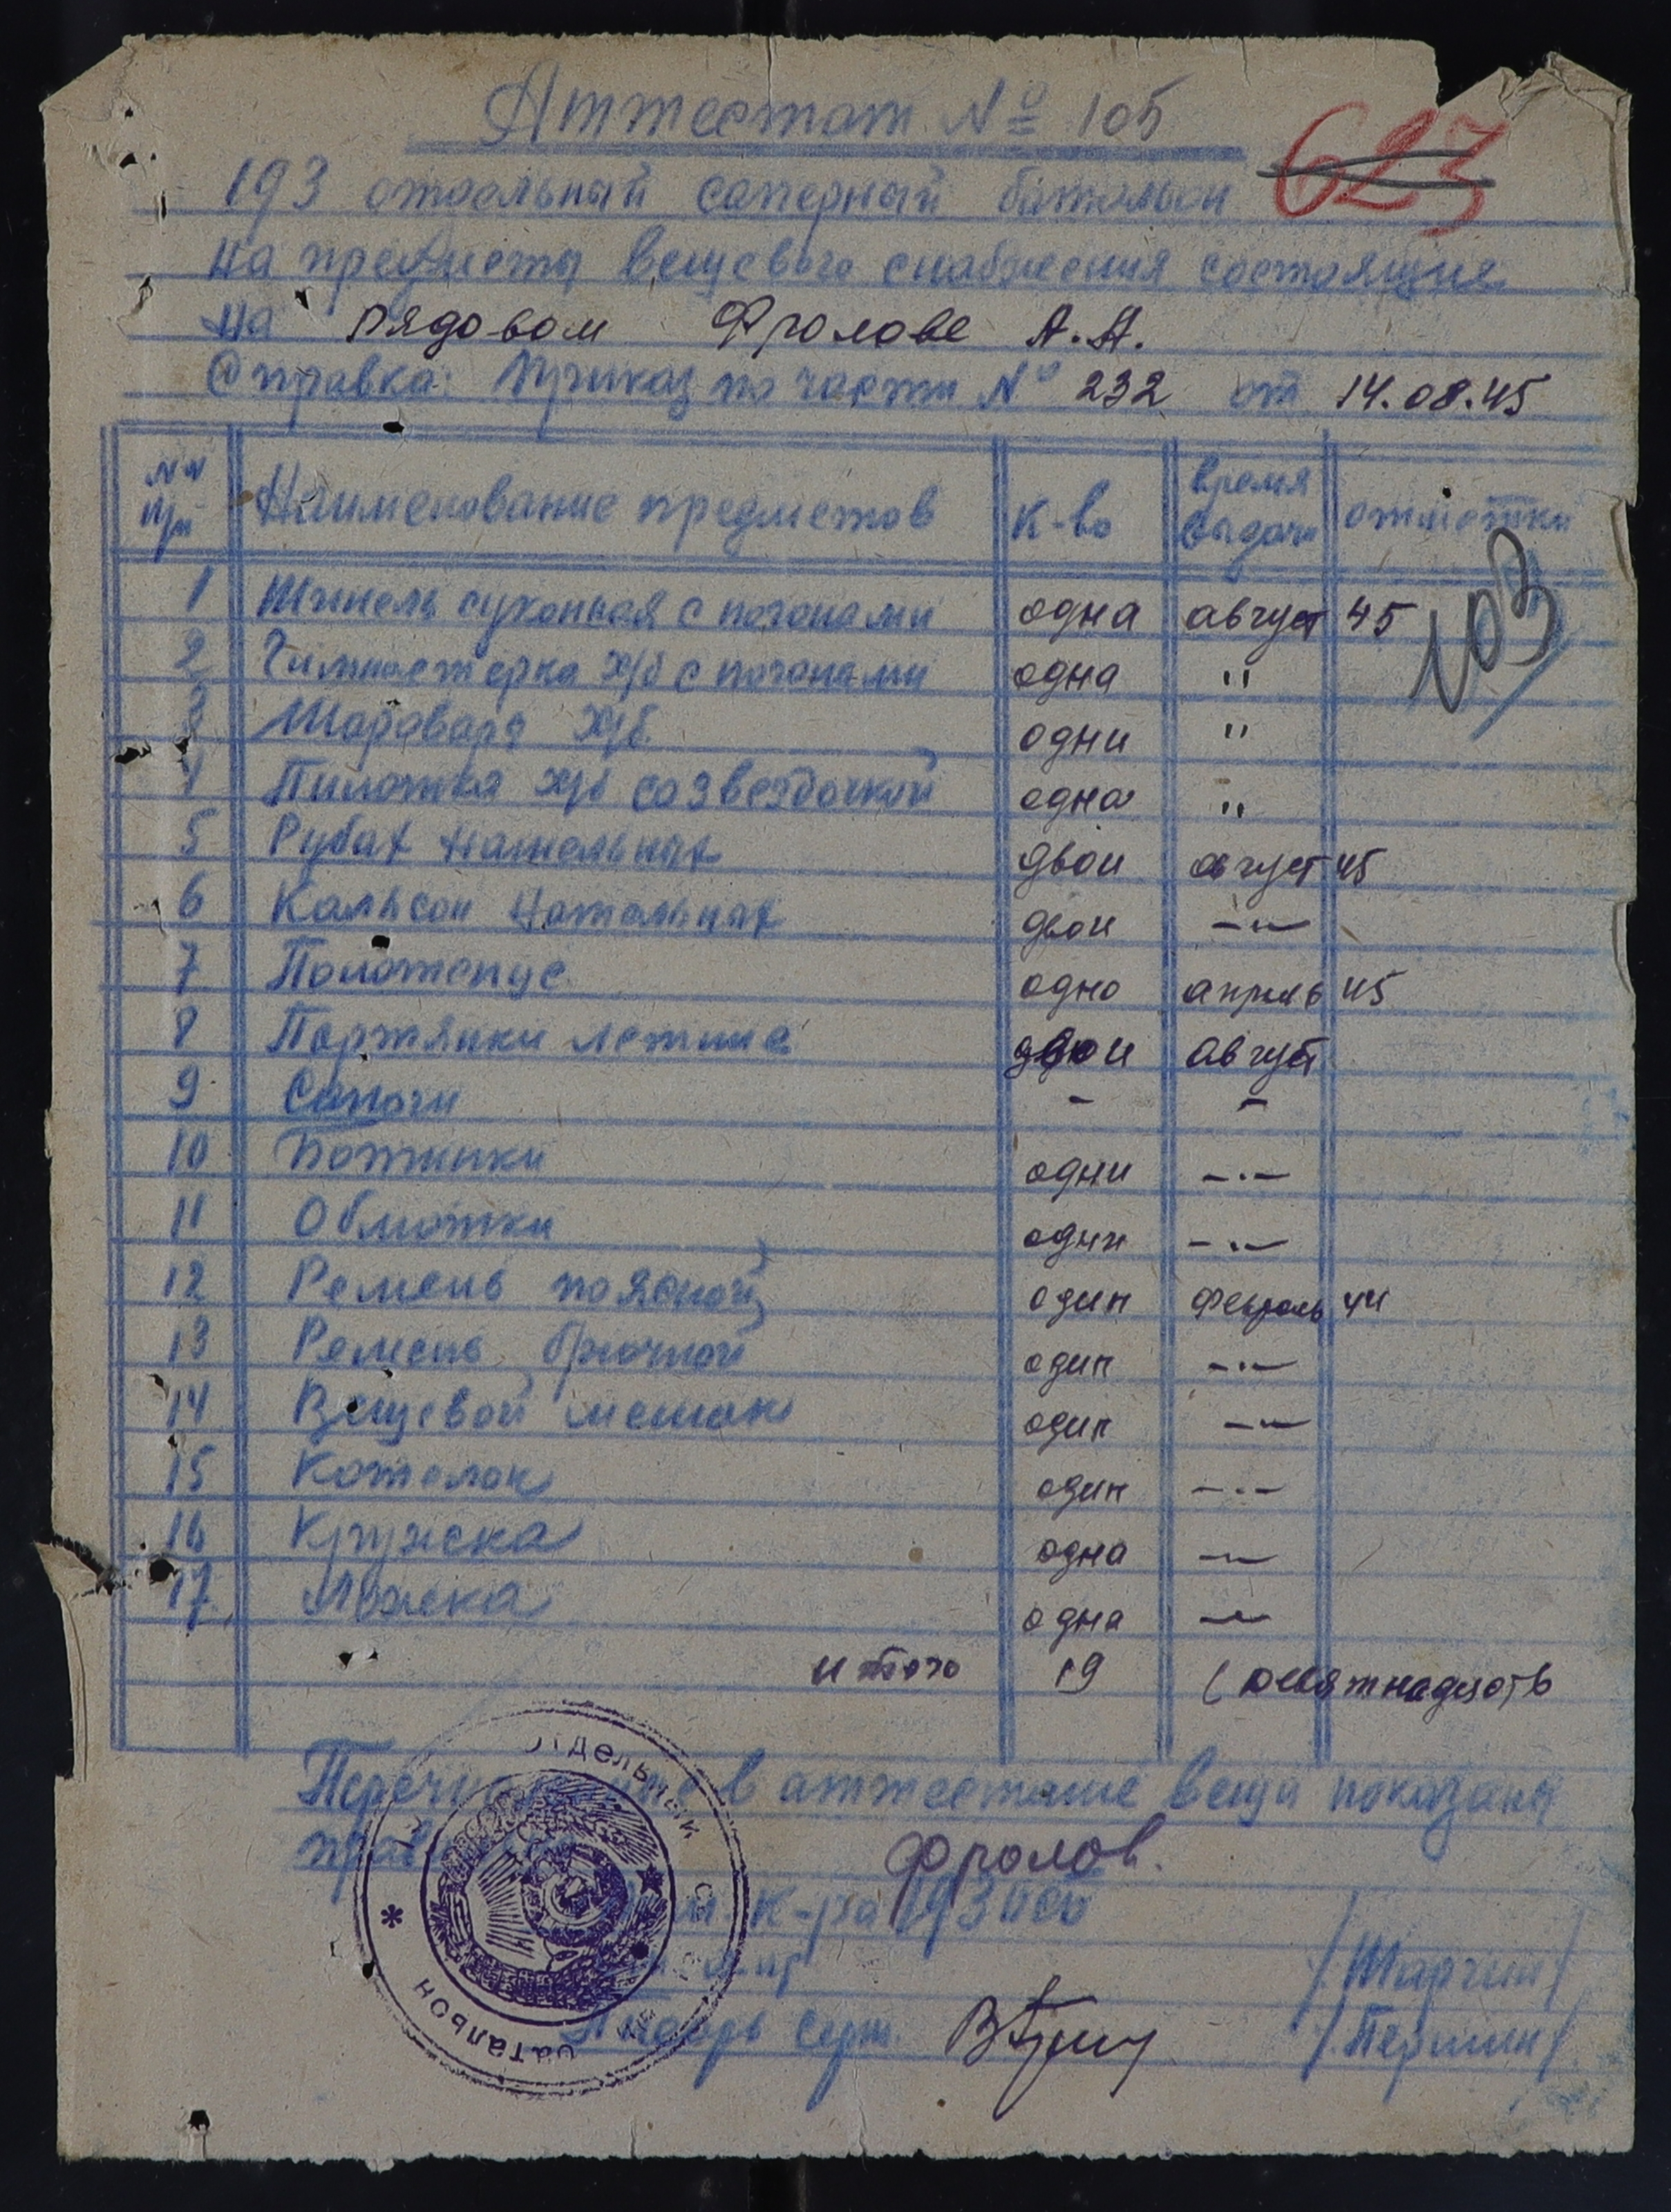 Аттестат № 105
623
193 отдельный саперный батальон
на предметы вещевого снабжения состоящие
на рядовом Фролове А.Н.
Справка: Приказ по части № 232 от 14.08.45
NN п/п Наименование предметов к-во время выдачи отметки
103
1 Шинель суконная с погонами одна август 45
2 Гимнастерка х/б с погонами одна "
3 Шаровары х/б одни "
4 Пилотка х/б со звездочкой одна "
5 Рубах нательных двои август 45
6 Кальсон нательных двои -"-
7 Полотенце одно апрель 45
8 Портянки летние двои август
9 Сапоги - -
10 Ботинки одни -"-
11 Обмотки одни -"-
12 Ремень поясной один февраль 44
13 Ремень брючной один -"-
14 Вещевой мешок один -"-
15 Котелок один -"-
16 Кружка одна -"-
17 Ложка одна -"-
итого 19 (девятнадцать
в аттестате вещи показаны
Фролов.
к-ра 193
/Шаргин/
Писарь серж. /Першин/
отдельный
батальон